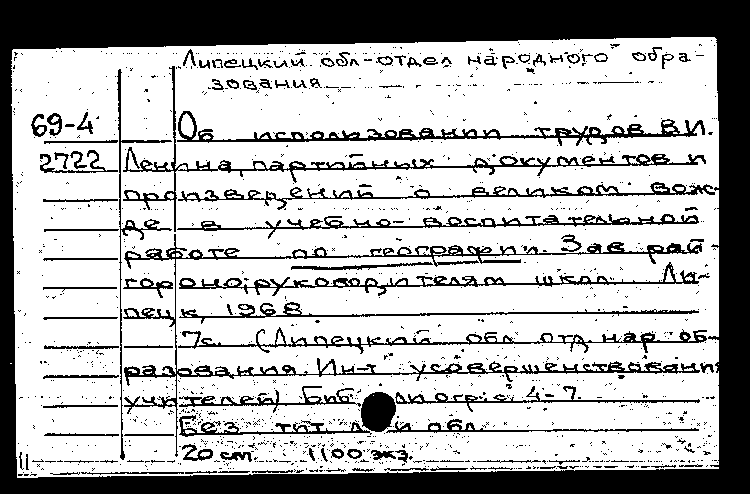 Липецкий обл-отдел народного обра-
зования
69-4 Об использовании трудов В.И.
2722 Ленина, партийных документов и
произведений о великом вож-
де в учебно-воспитательной
работе по географии. Зав рай-
гороно, руководителям школ. Ли-
пецк, 1968.
7с. (Липецкий обл отд нар об-
разования. Ин-т усовершенствования
учителей) Библиогр: с. 4-7.
Без тит л и обл
20 см. 1100 экз.